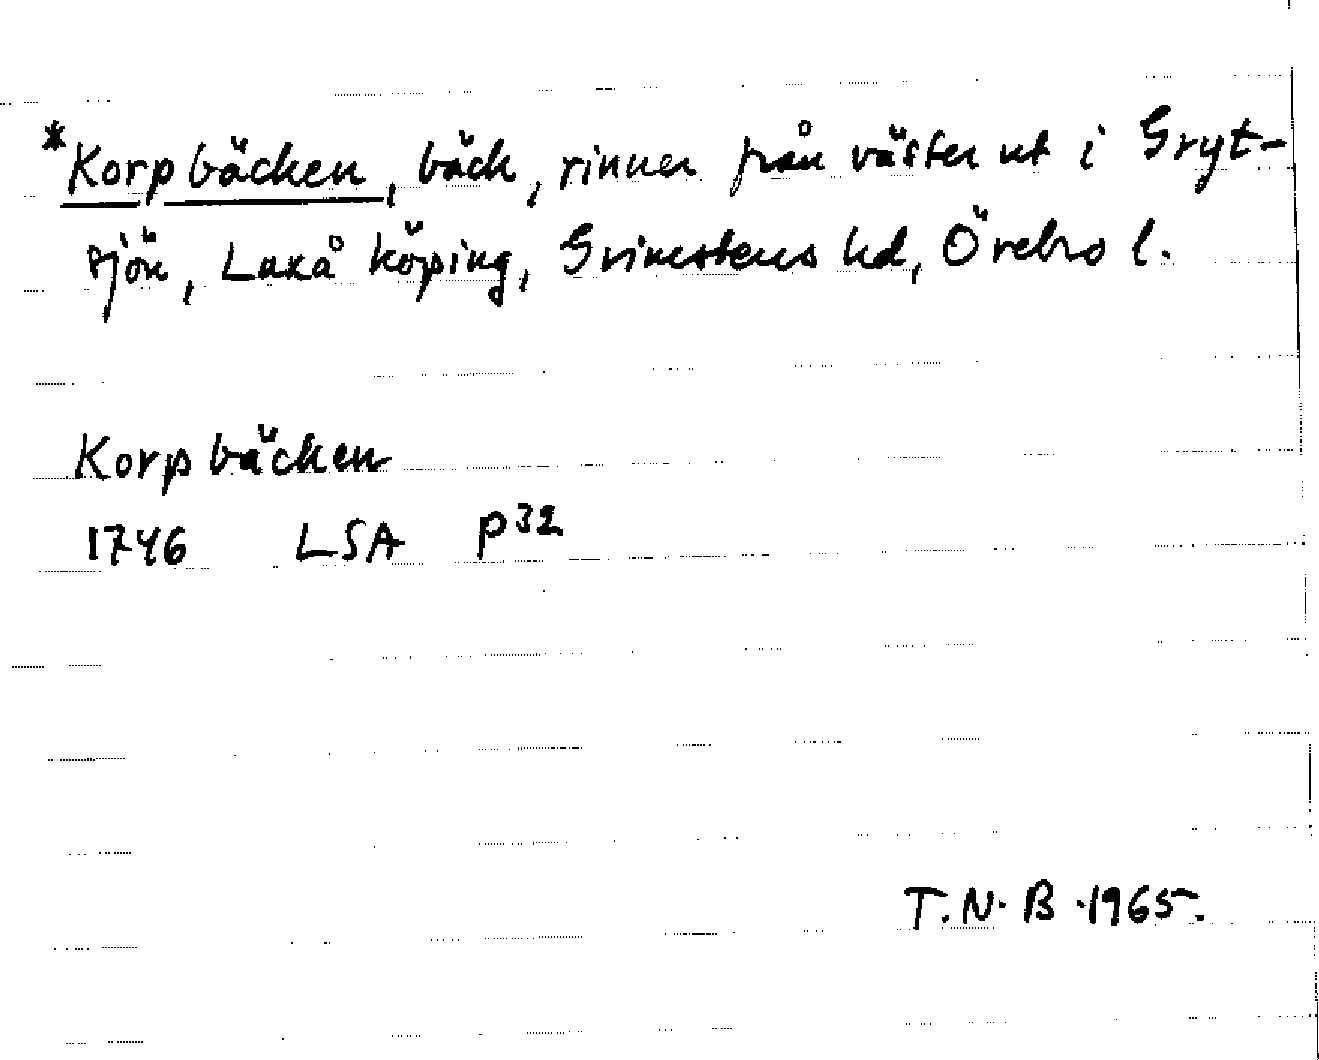 *Korpbäcken, bäck, rinner från väster ut i Gryt-
sjön, Laxå köping, Grimstens hd, Örebro l.
Korpbäcken
1746 LSA p32
T.N.B. 1965.